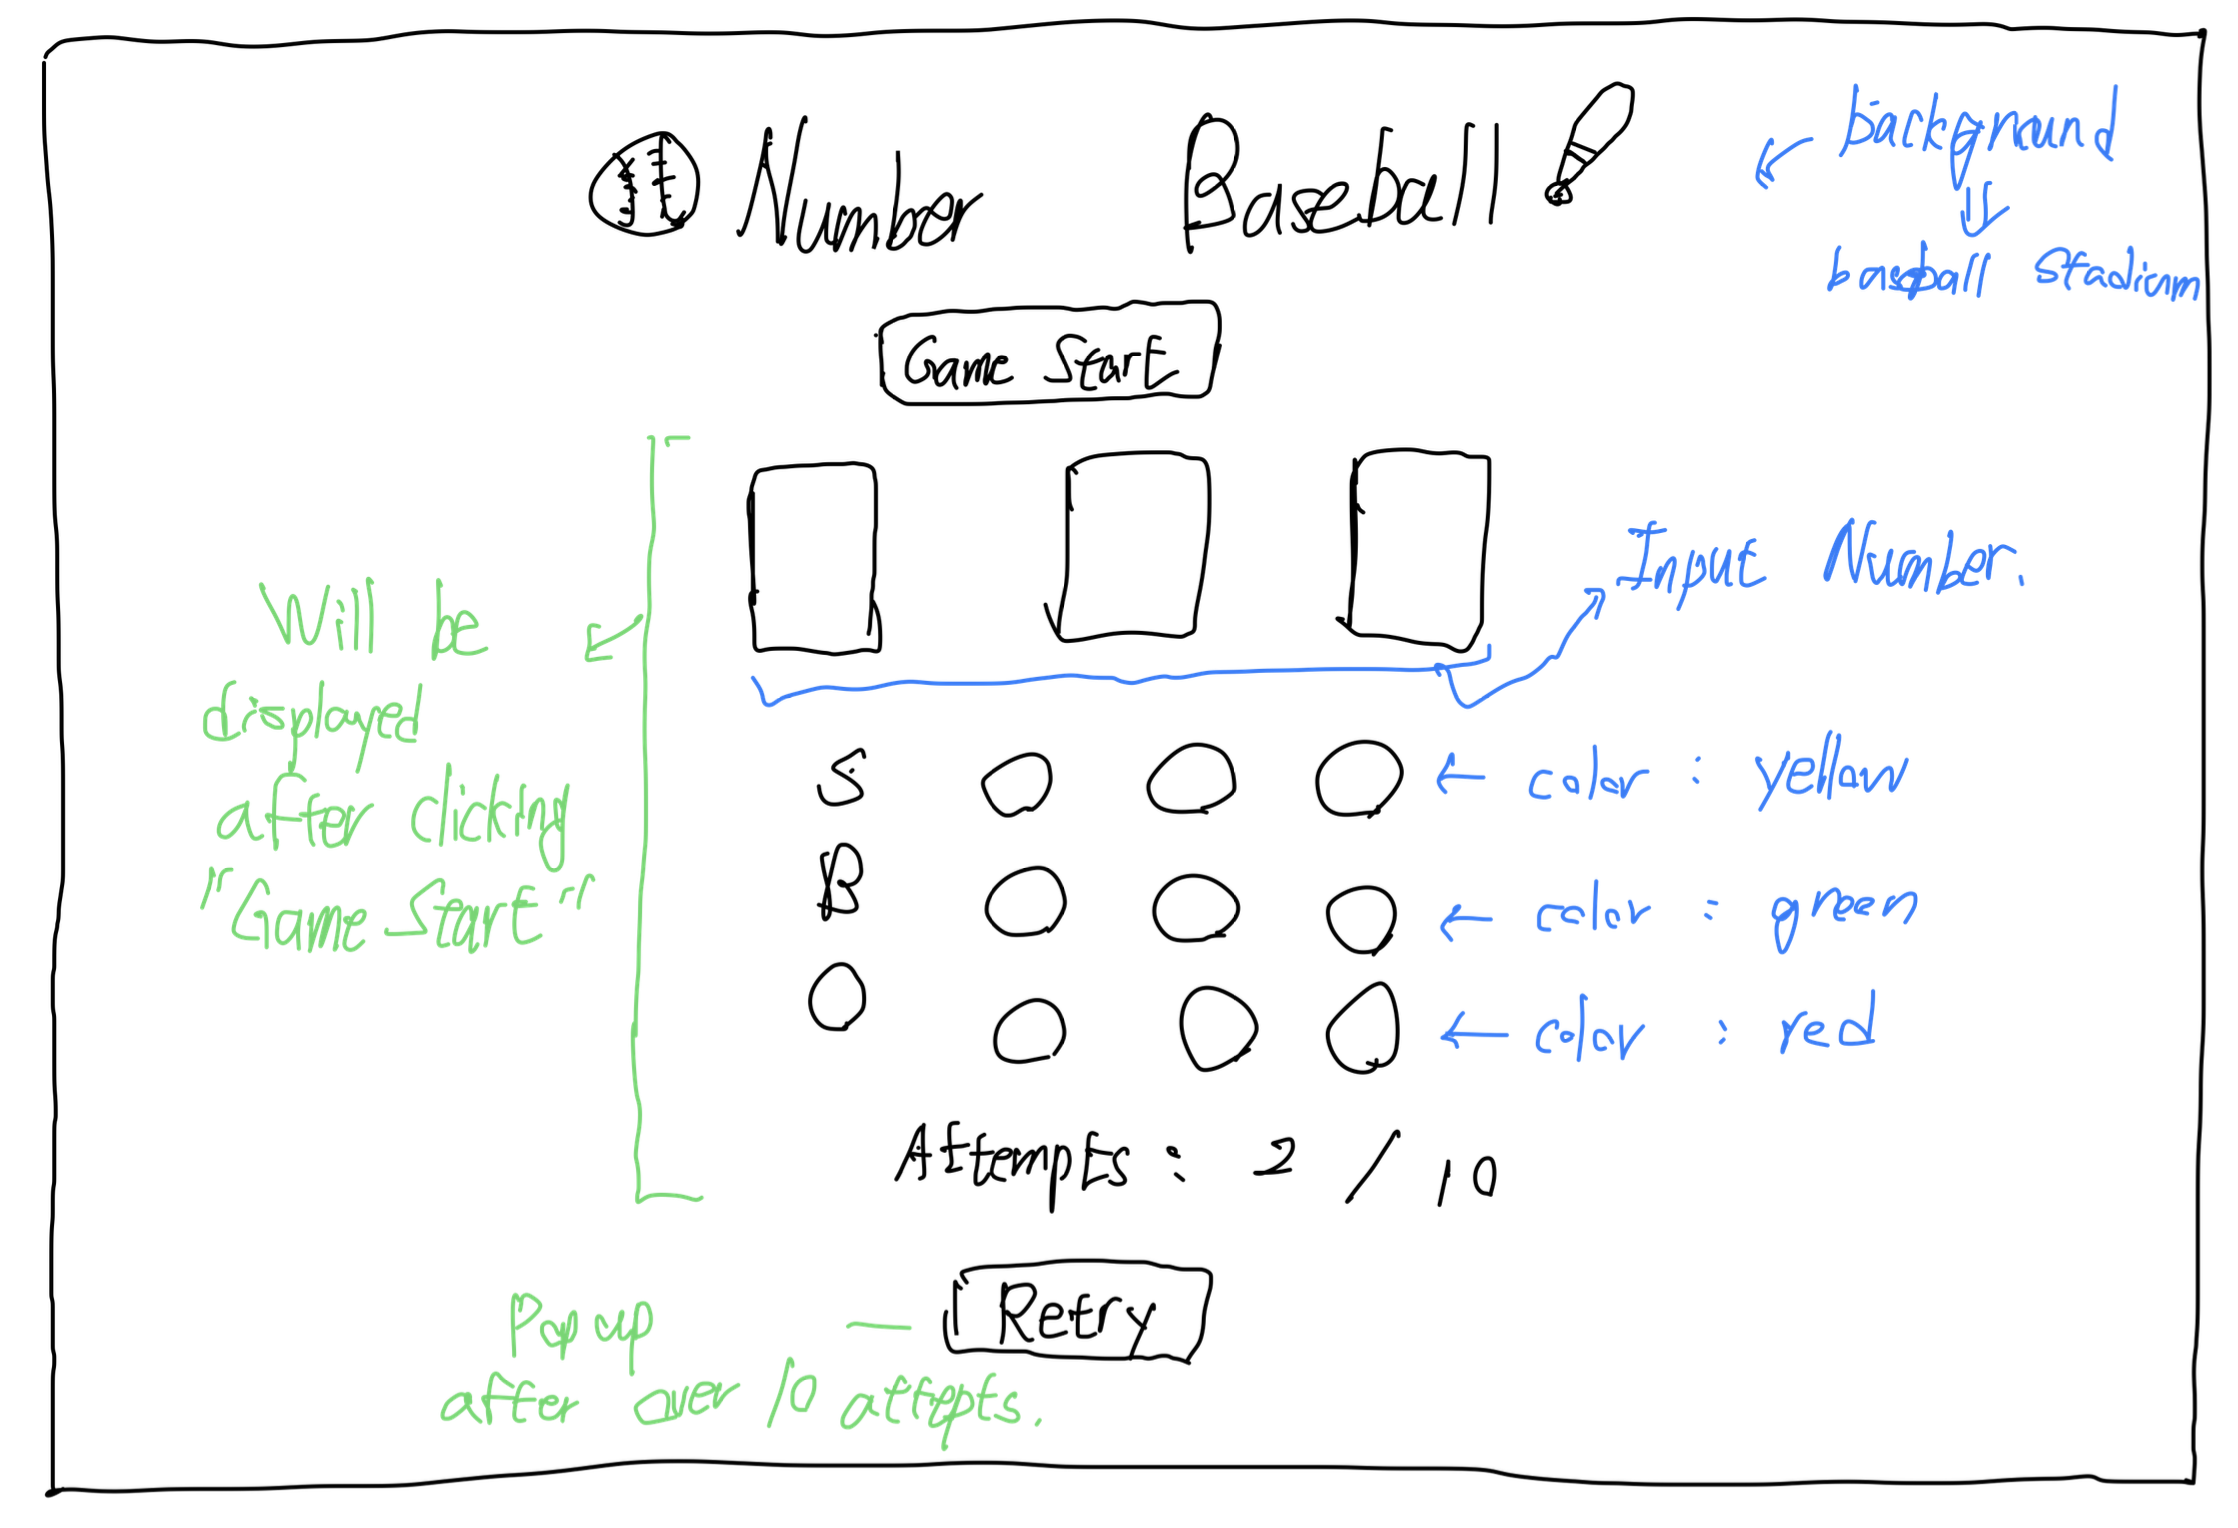 Number Baseball
background
baseball stadium
Game Start
Input Number.
Will be
displayed
after clicking
"Game Start"
S
color : yellow
B
color : green
O
color : red
Attempts : 2 / 10
Retry
Pop up
after over 10 attepts.